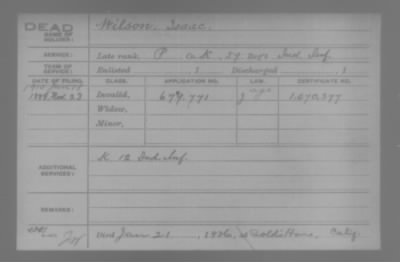 DEAD
NAME OF SOLDIER:
Wilson, Isaac.
SERVICE:
Late rank, P Co. K, 59 Regt Ind. Inf.
TERM OF SERVICE:
Enlisted , 1 Discharged , 1
DATE OF FILING. CLASS. APPLICATION NO. LAW. CERTIFICATE NO.
1888 Nov. 23 Invalid, 679,771 J 1,070,377
Widow,
Minor,
ADDITIONAL SERVICES:
K 12 Ind. Inf.
REMARKS:
Died Jan 21, 1926, at Soldiers Home, Calif.